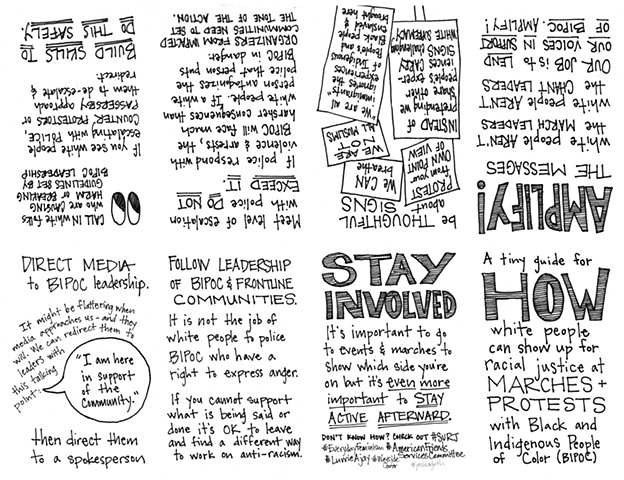 A tiny guide for
HOW
white people
can show up for
racial justice at
MARCHES +
PROTESTS
with Black and
Indigenous People
of Color (BIPOC)
AMPLIFY!
THE MESSAGES
white people AREN'T
the MARCH LEADERS
white people AREN'T
the CHANT LEADERS
OUR JOB is to LEND
OUR VOICES IN SUPPORT
OF BIPOC. AMPLIFY!
be THOUGHTFUL
about
SIGNS
PROTEST
from your
OWN POINT
OF VIEW
"WE CAN
breathe
WE ARE
NOT
ALL MUSLIMS
INSTEAD of
pretending we
share other
people's exper-
iences CARRY
SIGNS challenging
WHITE SUPREMACY
"we are all
immigrants"
ignores the
experiences
of Indigenous
People's and
Black people
enslaved &
brought here
Meet level of escalation
with police. DO NOT
EXCEED IT.
If police respond with
violence & arrests, the
BIPOC will face much
harsher consequences than
white people. If a white
person antagonizes the
police that person puts
BIPOC in danger.
ORGANIZERS FROM IMPACTED
COMMUNITIES NEED TO SET
THE TONE OF THE ACTION.
CALL IN white folks
who are CAUSING
HARM or BREAKING
GUIDELINES SET BY
BIPOC LEADERSHIP
If you see white people
escalating with POLICE,
COUNTER PROTESTORS or
PASSERSBY approach
them to de-escalate &
redirect.
BUILD SKILLS TO
DO THIS SAFELY.
DIRECT MEDIA
to BIPOC leadership.
It might be flattering when
media approaches us - and they
will. We can redirect them to
leaders with
this talking
point:
"I am here
in support
of the
Community."
then direct them
to a spokesperson
FOLLOW LEADERSHIP
OF BIPOC & FRONTLINE
COMMUNITIES.
It is not the job of
white people to police
BIPOC who have a
right to express anger.
If you cannot support
what is being said or
done it's OK to leave
and find a different way
to work on anti-racism.
STAY
INVOLVED
It's important to go
to events & marches to
show which side you're
on but it's even more
important to STAY
ACTIVE AFTERWARD.
DON'T KNOW HOW? CHECK OUT #SURJ
#EverydayFeminism #AmericanFriends
ServicesCommittee
#LuvvieAjayi